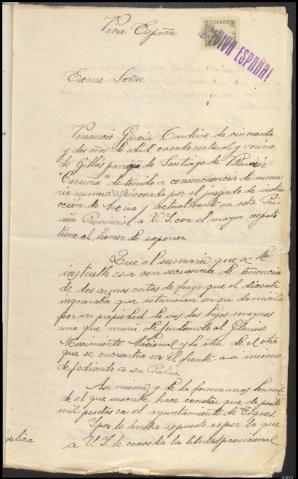 Viva España
¡VIVA ESPAÑA!
Excmo Señor
Venancio García Candeira de cincuenta
y dos años de edad, casado natural y vecino
de parroquia de Santiago de
"Coruña" detenido a consecuencia de suma-
rio numero incoado por el juzgado de instruc-
ción de y actualmente en esta Pri-
sión Provincial a V.S. con el mayor respeto
tiene el honor de exponer
Que el sumario que se le
instruye es a consecuencia de tenencia
de dos armas cortas de fuego que el dicente
ignoraba que estuvieran en su domicilio
por ser propiedad de sus dos hijos mayores
uno que murio defendiendo el Glorioso
Movimiento Nacional y la otra de el otro
que se encuentra en el frente asi mismo
defediendo a su Patria
Asi mismo y de la forma mas humil-
de el que suscribe hace constar que
mil pesetas en el ayuntamiento de
Y por lo arriba expuesto es por lo que
suplica a V.S. le conceda la libertad provisional